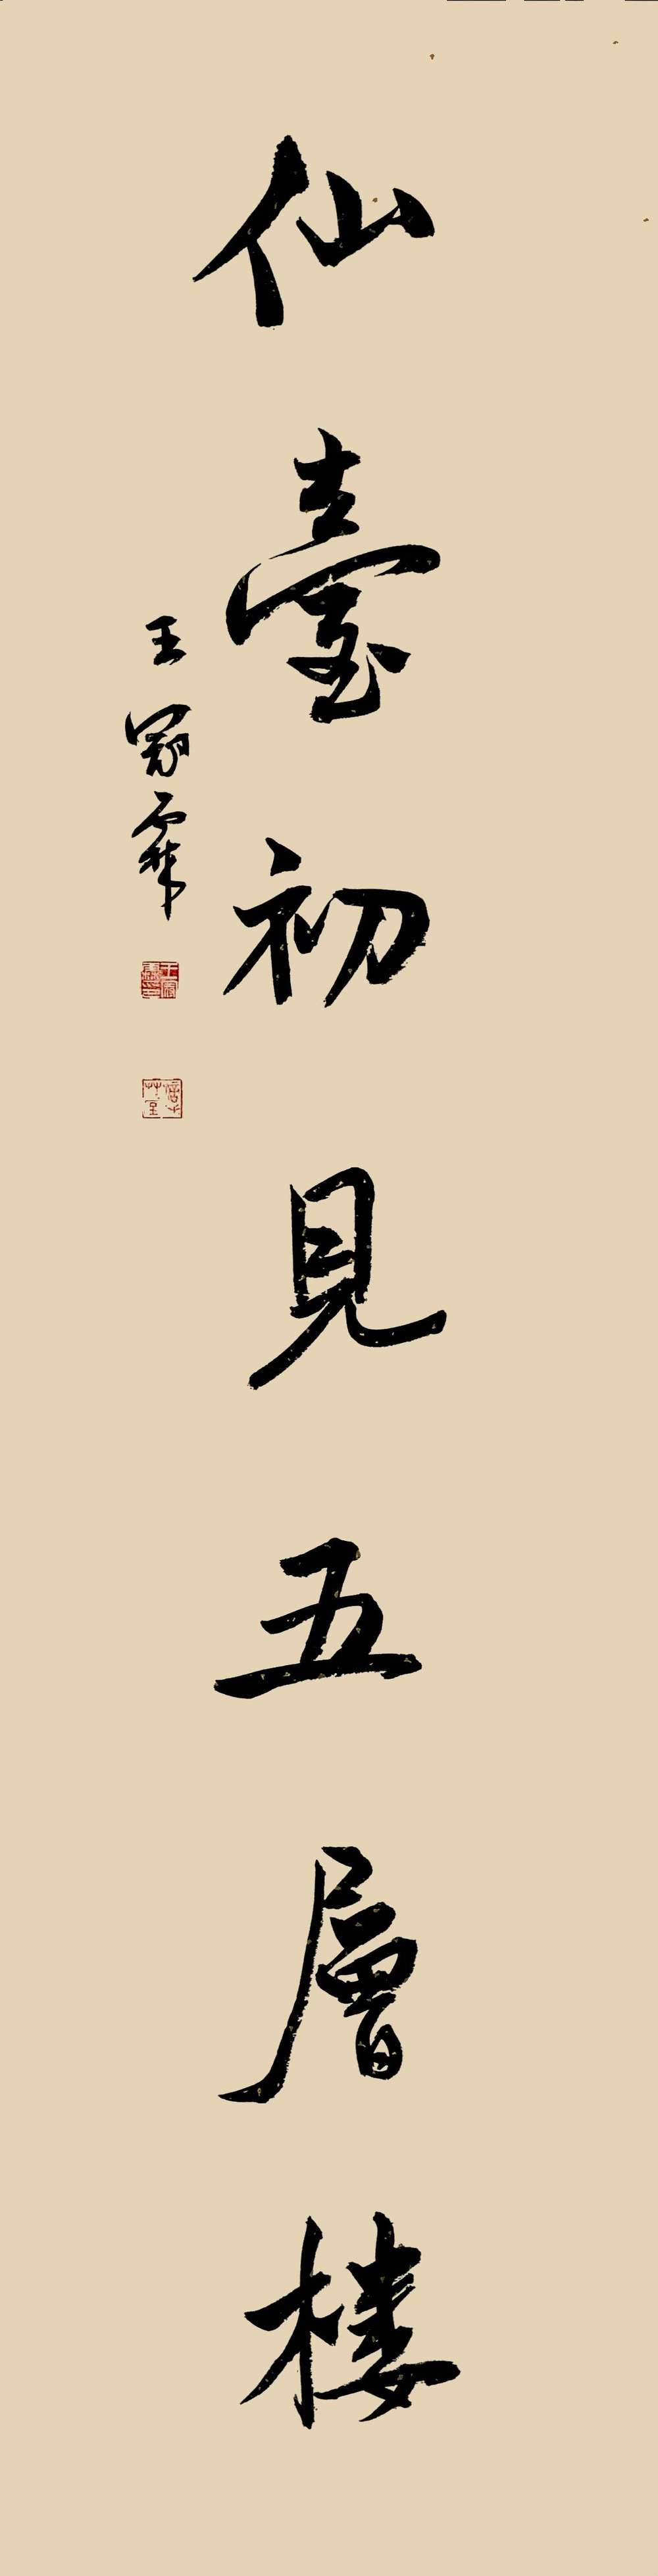 仙臺初見五層樓
王冠霖